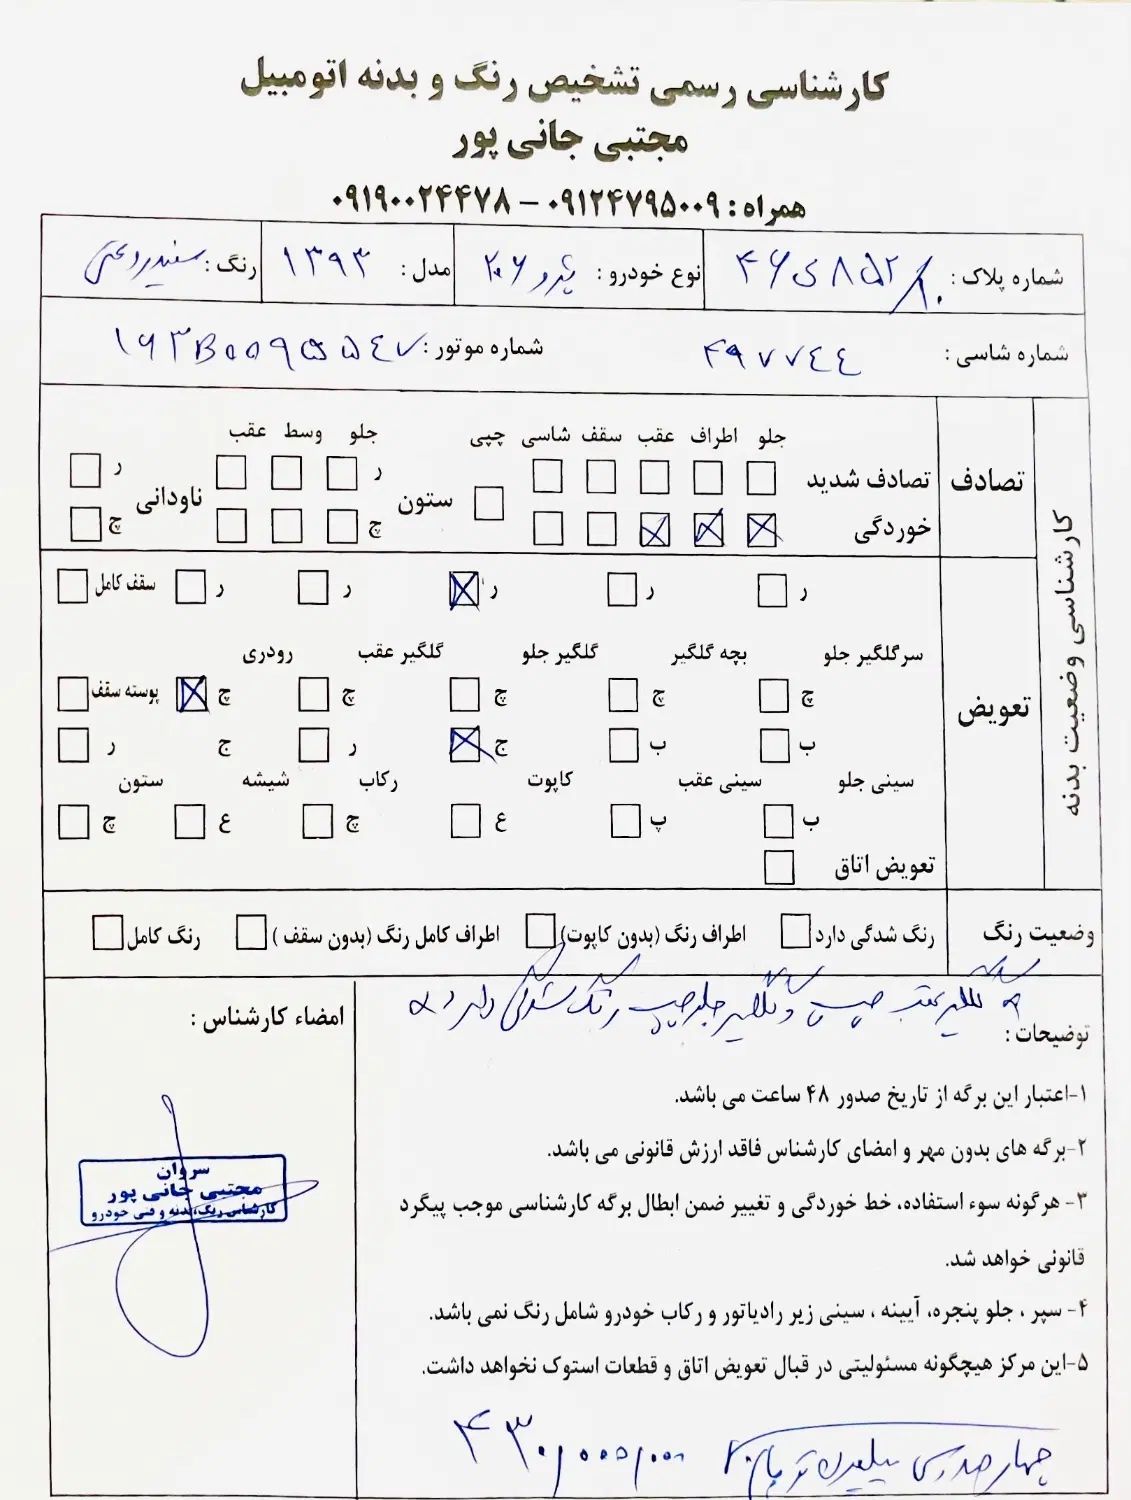 کارشناسی رسمی تشخیص رنگ و بدنه اتومبیل
مجتبی جانی پور
همراه : ۰۹۱۲۴۷۹۵۰۰۹ – ۰۹۱۹۰۰۲۴۴۷۸
شماره پلاک : ۴۶ ی ۸۵۲ / ۱۰ نوع خودرو : پژو ۲۰۶ مدل : ۱۳۹۳ رنگ : سفید روغنی
شماره شاسی : ۴۹۷۷۴۴ شماره موتور : ۱۶۳B۰۰۹۵۵۴۷
کارشناسی وضعیت بدنه
تصادف
جلو اطراف عقب سقف شاسی چپی جلو وسط عقب
تصادف شدید ستون ر ناودانی ر
خوردگی چ چ
تعویض
ر ر ر ر ر سقف کامل
سرگلگیر جلو بچه گلگیر گلگیر جلو گلگیر عقب رودری
چ چ چ چ چ پوسته سقف
ب ب ج ر ج ر
سینی جلو سینی عقب کاپوت رکاب شیشه ستون
ب پ ع چ ع چ
تعویض اتاق
وضعیت رنگ رنگ شدگی دارد اطراف رنگ (بدون کاپوت) اطراف کامل رنگ (بدون سقف ) رنگ کامل
گلگیر عقب چپ و گلگیر جلو چپ رنگ شدگی دارد
توضیحات :
امضاء کارشناس :
۱-اعتبار این برگه از تاریخ صدور ۴۸ ساعت می باشد.
۲-برگه های بدون مهر و امضای کارشناس فاقد ارزش قانونی می باشد.
۳- هرگونه سوء استفاده، خط خوردگی و تغییر ضمن ابطال برگه کارشناسی موجب پیگرد
قانونی خواهد شد.
۴- سپر ، جلو پنجره، آیینه ، سینی زیر رادیاتور و رکاب خودرو شامل رنگ نمی باشد.
۵-این مرکز هیچگونه مسئولیتی در قبال تعویض اتاق و قطعات استوک نخواهد داشت.
سروان
مجتبی جانی پور
کارشناس رنگ، بدنه و فنی خودرو
چهارصدوسی میلیون تومان ۴۳۰/۰۰۰/۰۰۰